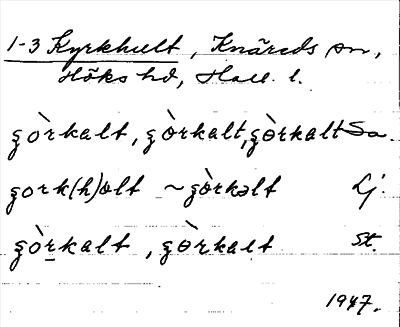 1-3 Kyrkhult, Knäreds sn,
Höks hd, Hall. l.
ɕòrkalt, ɕòrkalt, ɕèrkalt Sa.
ɕork(h)ɷlt ~ ɕòrkəlt Lj.
ɕòrkalt, ɕɵ̀rkalt St.
1947.